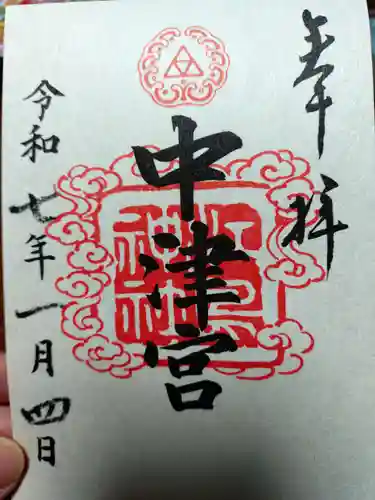 奉拝
中津宮
令和七年一月四日